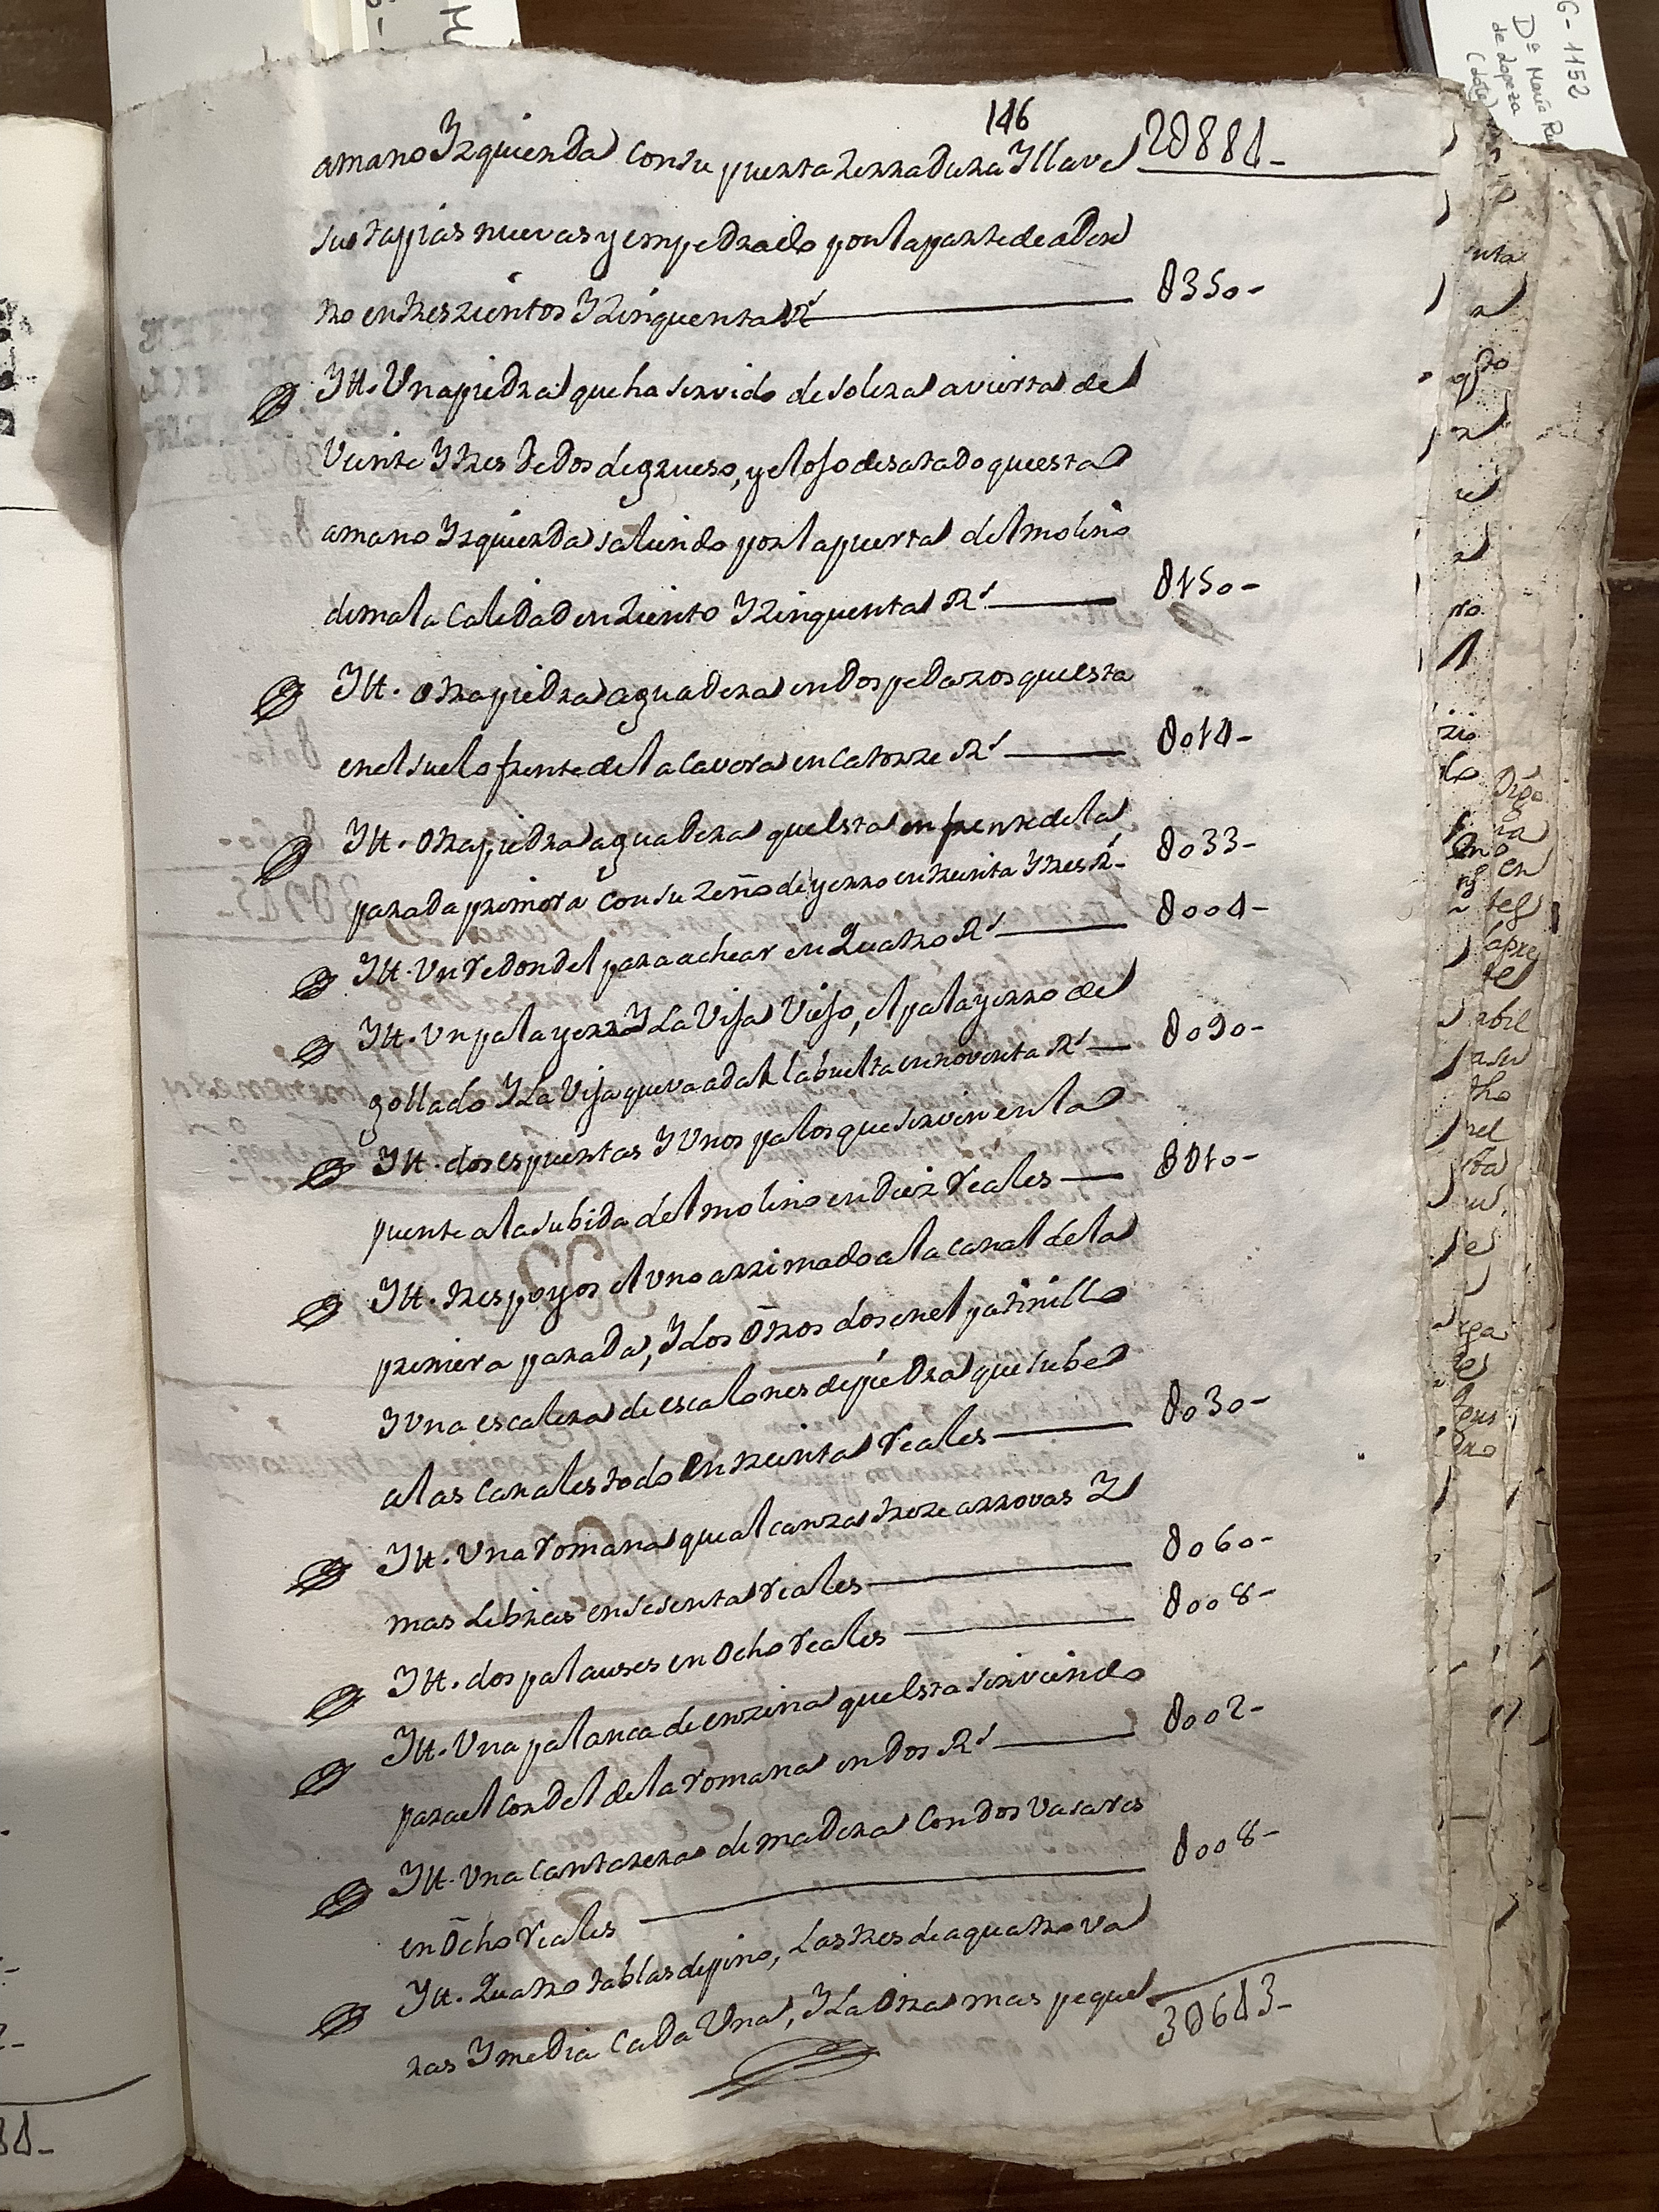 146
amano Izquierda con su puerta zerradura Y llave 2U884-
sus tapias nuevas y empedrado por la parte de aden
tro en treszientos Y zinquenta Rs U350-
Itt. Una piedra que ha servido de solera avierta de
Veinte Y tres dedos de grueso, y el ofo desatado questa
amano Izquierda saliendo por la puerta del molino
de mala Calidad en Ziento Y zinquenta Rs U150-
Itt. otra piedra aguadera en dos pedazos questa
en el suelo frente de la Cavera en Catorze Rs U014-
Itt. otra piedra aguadera questa en frente de la
parada primera con su zeño de yerro en treinta Y tres Rs- U033-
Itt. Un redondel para achear en Quatro Rs U004-
Itt. Un palayerro Y La Vija Viejo, el palayerro de
gollado Y La Vija que va adar la buelta en noventa Rs U090-
Itt. dos espuertas Y Unos palos que sirven en la
puente a la subida del molino en Diez reales U010-
Itt. tres poyos el uno arrimado a la canal de la
primera parada, Y los otros dos en el patinillo
Y Una escalera de escalones de piedra que sube
a las canales todo en treinta reales U030-
Itt. Una romana que alcanza treze arrovas Y
mas Libras en sesenta reales U060-
Itt. dos palauses en ocho reales U008-
Itt. Una palanca de enzina questa sirviendo
para el cordel de la romana en dos Rs U002-
Itt. Una Cantarera de madera con dos vasares
en ocho reales U008-
Itt. Quatro tablas de pino, Las tres de a quatro va
ras Y media Cada Una, Y La otra mas peque 3U643-
G-1152
Dª María Ru
de Lapeza
(dote)